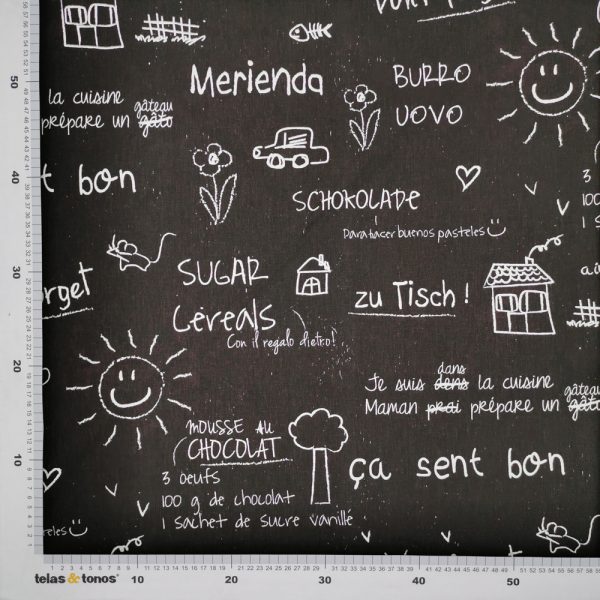 Merienda
BURRO
UOVO
la cuisine gâteau
prépare un gâto
t bon
SCHOKOLADE
Para hacer buenos pasteles
3
100
1 s
SUGAR
Céreals
Con il regalo dietro!
rget
zu Tisch!
dans
Je suis dens la cuisine gâteau
Maman prai prépare un gâto
MOUSSE AU
CHOCOLAT
3 oeufs
100 g de chocolat
1 sachet de sucre vanillé
ça sent bon
steles
telas & tonos
10 20 30 40 50
10
20
30
40
50